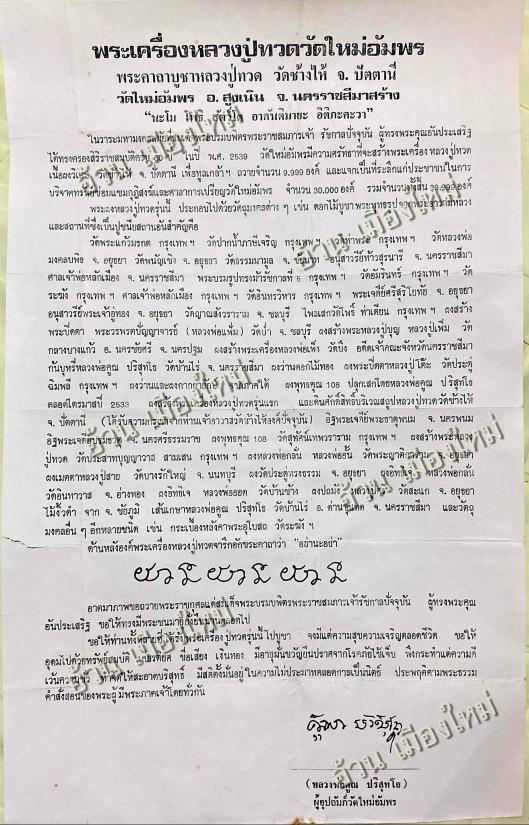 พระเครื่องหลวงปู่ทวดวัดใหม่อัมพร
พระคาถาบูชาหลวงปู่ทวด วัดช้างไห้ จ. ปัตตานี
วัดใหม่อัมพร อ. สูงเนิน จ. นครราชสีมาสร้าง
"นะโม โพธิสัตโต อาคันติมายะ อิติภะคะวา"
ในวาระมหามงคลสมัยสมเด็จพระบรมบพิตรพระราชสมภารเจ้า รัชกาลปัจจุบัน ผู้ทรงพระคุณอันประเสริฐ
ได้ทรงครองสิริราชสมบัติครบ 50 ปี ในปี พ.ศ. 2539 วัดใหม่อัมพรมีความศรัทธาที่จะสร้างพระเครื่องหลวงปู่ทวด
จ. ปัตตานี เพื่อทูลเกล้าฯ ถวายจำนวน 9,999 องค์ และแจกเป็นที่ระลึกแก่ประชาชนในการ
บริจาคทรัพย์ซ่อมแซมกุฏิสงฆ์และศาลาการเปรียญวัดใหม่อัมพร จำนวน 30,000 องค์ รวมจำนวนทั้งสิ้น 39,999 องค์
พระผงหลวงปู่ทวดรุ่นนี้ ประกอบไปด้วยวัตถุมงคลต่าง ๆ เช่น ดอกไม้บูชาพระพุทธรูป
และสถานที่ซึ่งเป็นปูชนียสถานอันสำคัญคือ
วัดพระแก้วมรกต กรุงเทพฯ วัดปากน้ำภาษีเจริญ กรุงเทพฯ กรุงเทพฯ วัดหลวงพ่อ
มงคลบพิธ จ. อยุธยา วัดพนัญเชิง จ. อยุธยา วัดธรรมามูล จ. ชัยนาท อนุสาวรีย์ท้าวสุรนารี จ. นครราชสีมา
ศาลเจ้าพ่อหลักเมือง จ. นครราชสีมา พระบรมรูปทรงม้ารัชกาลที่ 5 กรุงเทพฯ วัดอัมรินทร์ กรุงเทพฯ วัด
ระฆัง กรุงเทพฯ ศาลเจ้าพ่อหลักเมือง กรุงเทพฯ วัดอินทรวิหาร กรุงเทพฯ พระเจดีย์ศรีสุริโยทัย จ. อยุธยา
อนุสาวรีย์พระเจ้าอู่ทอง จ. อยุธยา วัดญาณสังวราราม จ. ชลบุรี โพธิ์ ท่าเตียน กรุงเทพฯ ผงสร้าง
พระปิดตา พระวรพรตปัญญาจารย์ (หลวงพ่อแฟ้ม) วัดป่า จ. ชลบุรี ผงสร้างพระหลวงปู่บุญ หลวงปู่เพิ่ม วัด
กลางบางแก้ว อ. นครชัยศรี จ. นครปฐม ผงสร้างพระเครื่องหลวงพ่อเพ็ง วัดบึง อดีตเจ้าคณะจังหวัดนครราชสีมา
ก้นบุหรี่หลวงพ่อคูณ ปริสุทโธ วัดบ้านไร่ จ. นครราชสีมา ผงว่านดอกไม้ทอง ผงพระปิดตาหลวงปู่โต๊ะ วัดประดู่
ฉิมพลี กรุงเทพฯ ผงพุทธคุณ 108 ปลุกเสกโดยหลวงพ่อคูณ ปริสุทโธ
ตลอดไตรมาสปี 2533 หลวงปู่ทวดรุ่นแรก และดินศักดิ์สิทธิ์บริเวณสถูปหลวงปู่ทวดวัดช้างไห้
จ. ปัตตานี (ได้รับความกรุณาจากท่านเจ้าอาวาสวัดช้างไห้องค์ปัจจุบัน) อิฐพระเจดีย์พระธาตุพนม จ. นครพนม
จ. นครศรีธรรมราช ผงพุทธคุณ 108 วัดสุทัศน์เทพวราราม กรุงเทพฯ ผงสร้างพระหลวง
ปู่ทวด วัดประสาทบุญญาวาส สามเสน กรุงเทพฯ ผงหลวงพ่อกลั่น หลวงพ่ออั้น วัดพระญาติการาม จ. อยุธยา
ผงเมตตาหลวงปู่สาย วัดบางรักใหญ่ จ. นนทบุรี ผงวัดประดู่ทรงธรรม จ. อยุธยา หลวงพ่อกลั่น
วัดอินทาราม จ. อ่างทอง ผงอิทธิเจ หลวงพ่อออด วัดบ้านช้าง ผงปถมัง หลวงปู่สี วัดสะแก จ. อยุธยา
ไม้งิ้วดำ จาก จ. ชัยภูมิ เส้นเกษาหลวงพ่อคูณ ปริสุทโธ วัดบ้านไร่ อ. ด่านขุนทด จ. นครราชสีมา และวัตถุ
มงคลอื่น ๆ อีกหลายชนิด เช่น กระเบื้องหลังคาพระอุโบสถ วัดระฆังฯ
ด้านหลังองค์พระเครื่องหลวงปู่ทวดจารึกอักขระคาถาว่า "อย่านะอย่า"
อาตมาภาพขอถวายพระราชกุศลแด่สมเด็จพระบรมบพิตรพระราชสมภารเจ้ารัชกาลปัจจุบัน ผู้ทรงพระคุณ
อันประเสริฐ ขอให้ทรงมีพระชนมายุยิ่งยืนนานตลอดไป
ขอให้ท่านทั้งหลายที่ได้รับพระเครื่องหลวงปู่ทวดรุ่นนี้ไปบูชา จงมีแต่ความสุขความเจริญตลอดชีวิต ขอให้
อุดมไปด้วยทรัพย์สมบัติ เกียรติยศ ชื่อเสียง เงินทอง มีอายุมั่นขวัญยืนปราศจากโรคภัยไข้เจ็บ พึงกระทำแต่ความดี
เว้นความชั่ว ทำจิตให้สะอาดบริสุทธิ์ มีสติตั้งมั่นอยู่ในความไม่ประมาทตลอดกาลเป็นนิตย์ ประพฤติตามพระธรรม
คำสั่งสอนของพระผู้มีพระภาคเจ้าโดยทั่วกัน
(หลวงพ่อคูณ ปริสุทโธ)
ผู้อุปถัมภ์วัดใหม่อัมพร
อ้วน เมืองใหม่
อ้วน เมืองใหม่
อ้วน เมืองใหม่
อ้วน เมืองใหม่
อ้วน เมืองใหม่
อ้วน เมืองใหม่